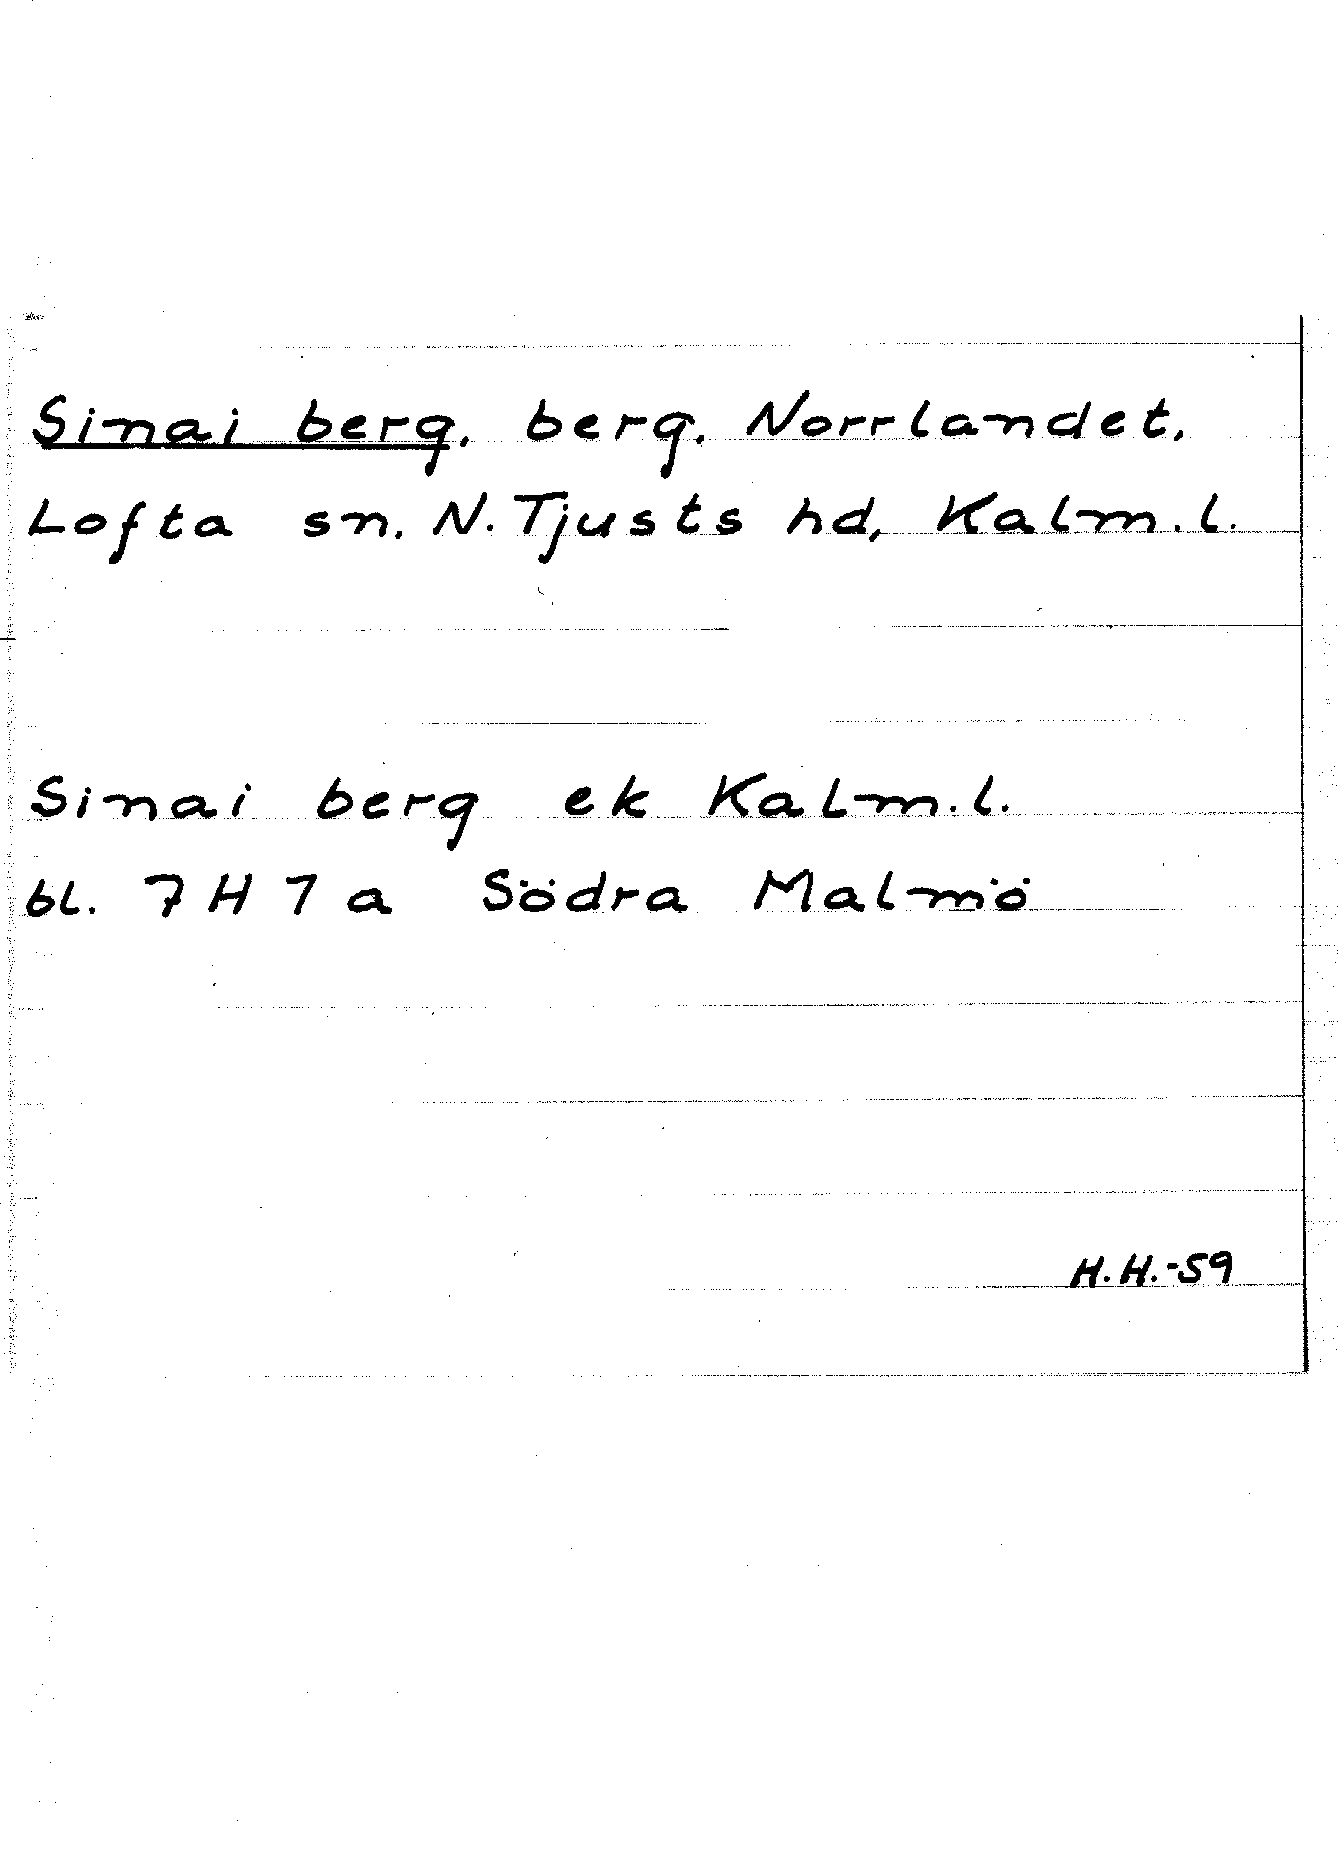 Sinai berg, berg, Norrlandet,
Lofta sn, N. Tjusts hd, Kalm. l.
Sinai berg ek Kalm. l.
bl. 7 H 7 a Södra Malmö
H. H. -59